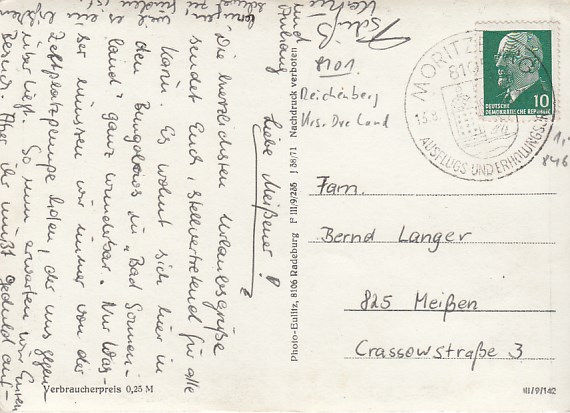 Liebe Meißener!
Die herzlichsten Urlaubsgrüße
sendet Euch, stellvertretend für alle
Karin. Es wohnt sich hier in
den Bungalows in "Bad Sonnen-
land" ganz wunderbar. Nur Was-
ser müssen wir immer von der
Zeltplatzpumpe holen, die uns gegen-
über liegt. So nun erwarten wir Euren
Besuch. Aber ihr müßt Geduld auf-
weil es ein
zu finden ist
und
Tschüß
Karin
8101
Reichenberg
Krs. Dre Land
MORITZBURG
8105
AUSFLUGS UND ERHOLUNGS
DEUTSCHE
DEMOKRATISCHE REPUBLIK
10
Fam.
Bernd Langer
825 Meißen
Crassowstraße 3
Photo-Eulitz, 8106 Radeburg F III/9/265 I 38/71 Nachdruck verboten
Verbraucherpreis 0,25 M
III/9/142